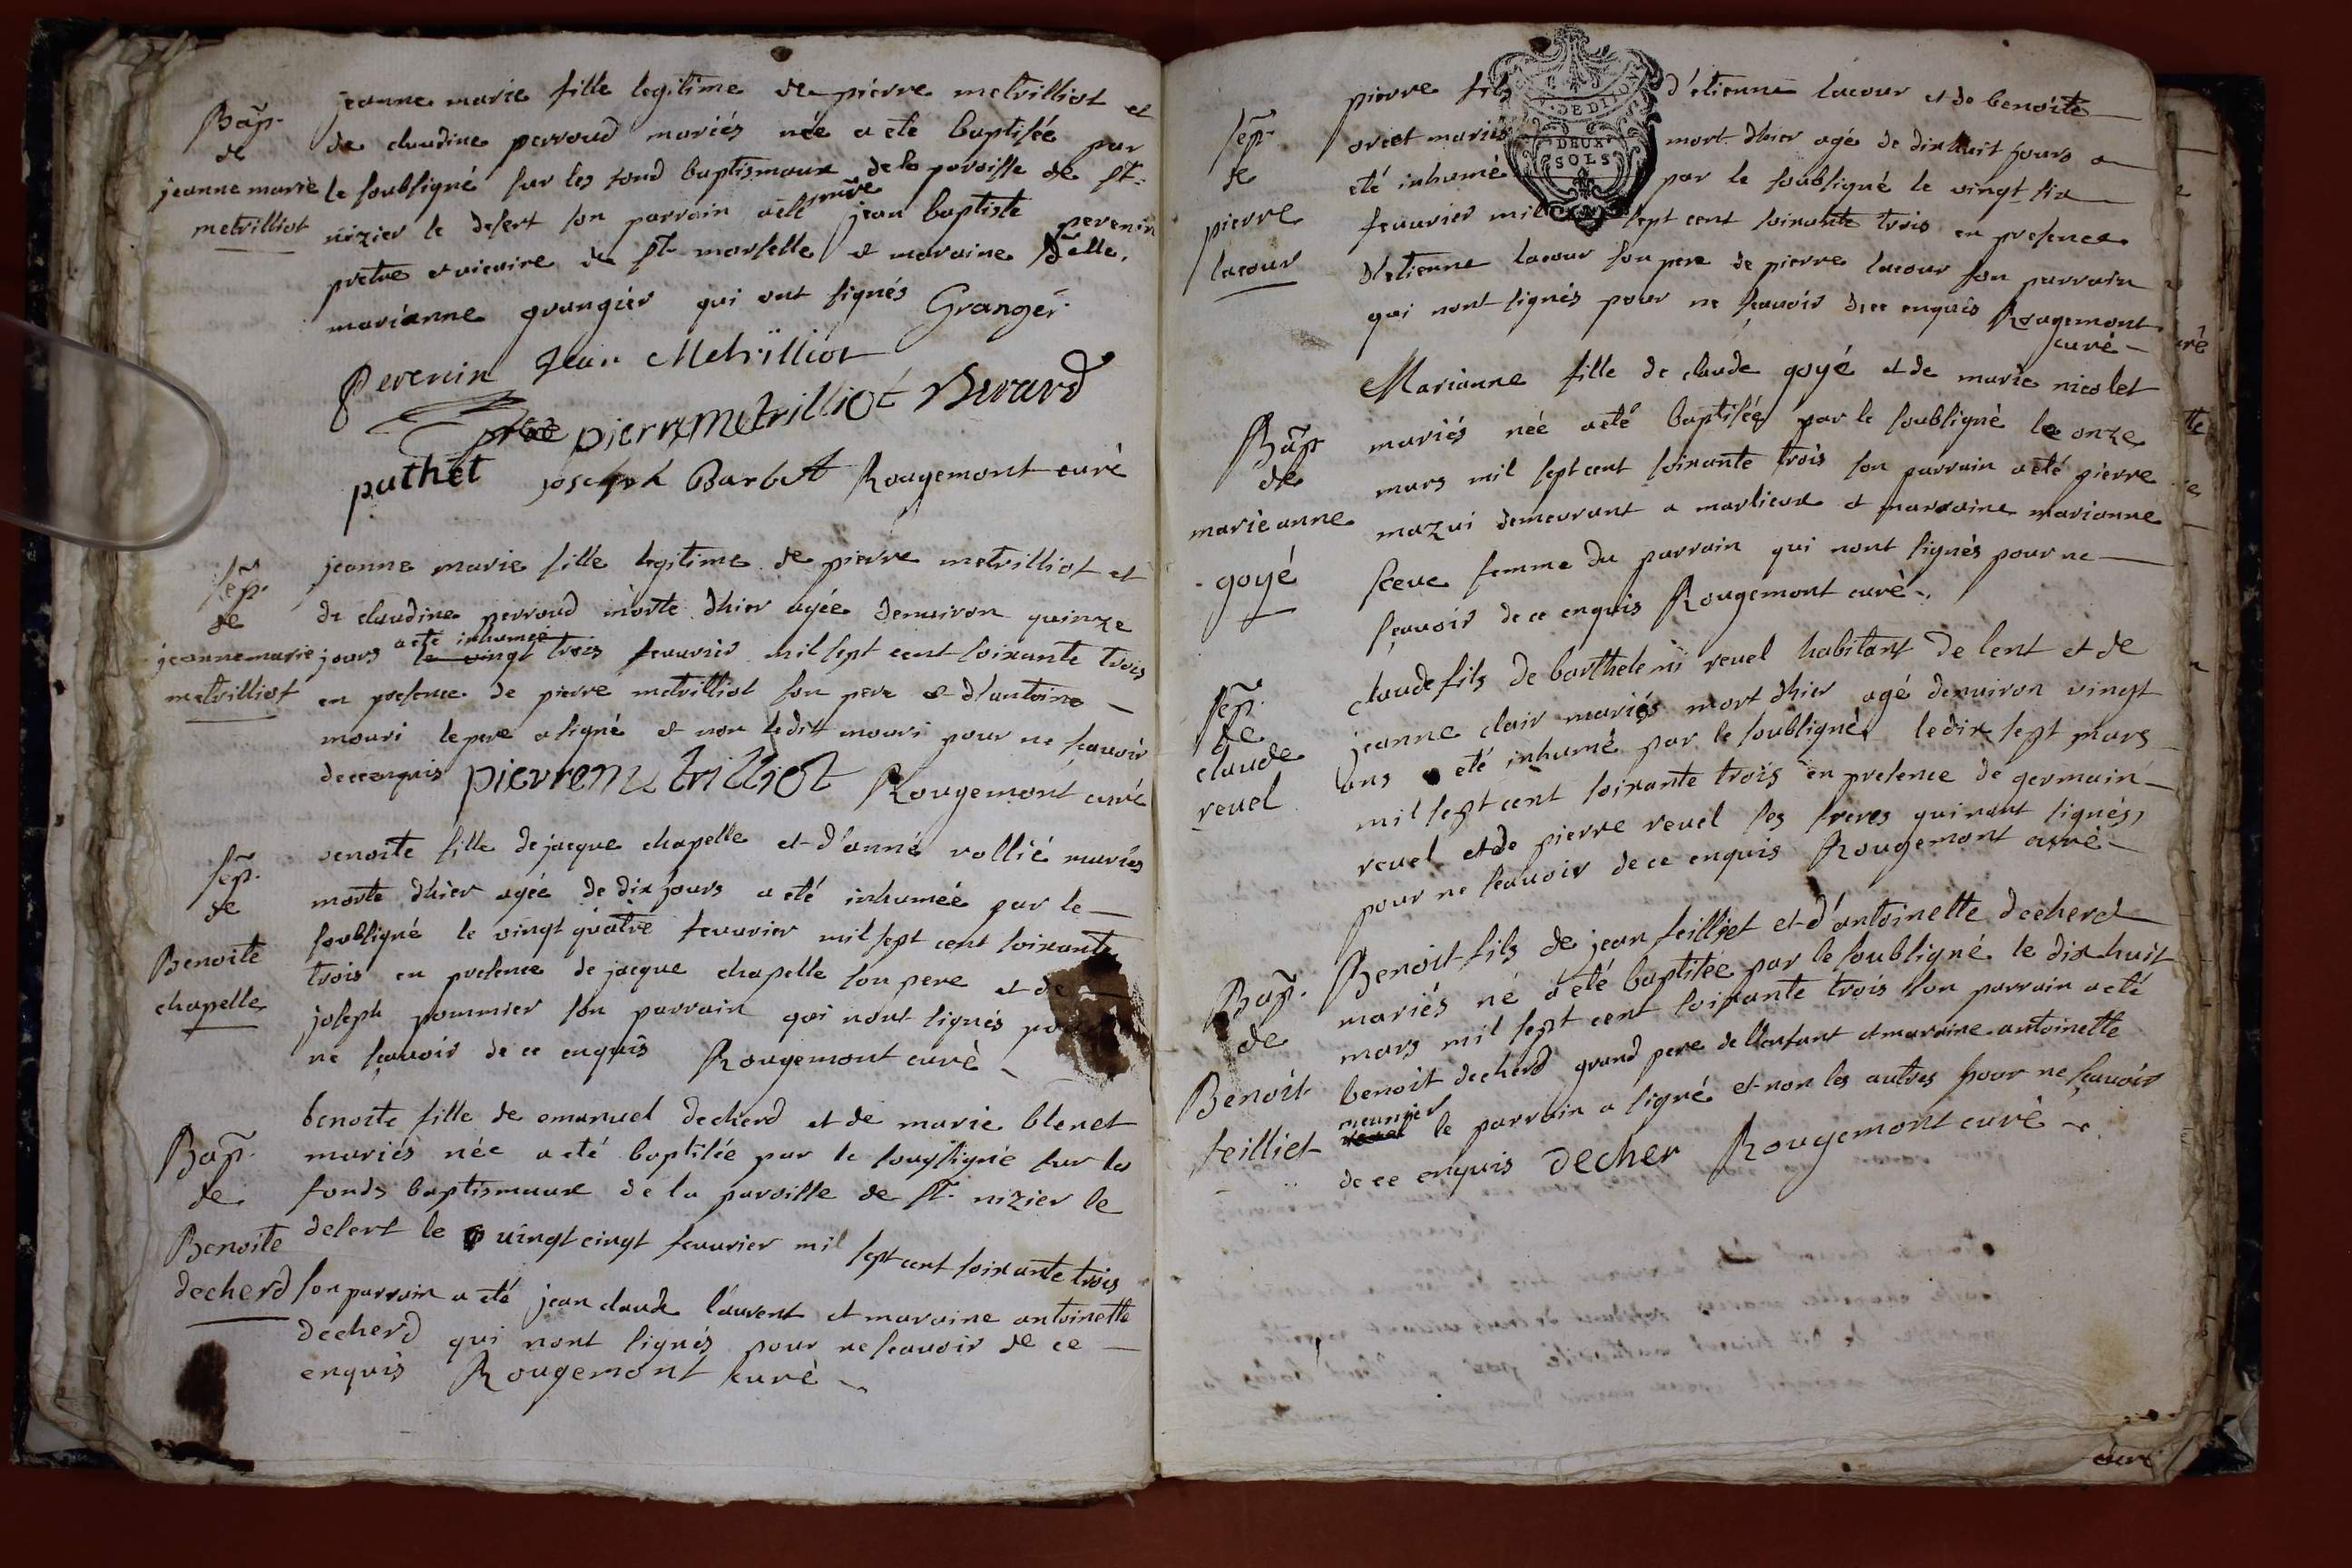 Bap.
de
jeanne marie
metrilliot
jeanne marie fille legitime de pierre metrilliot et
de claudine perroud mariés née a eté baptisée par
le soubsigné sur les fond baptismaux de la paroisse de st.
nizier le desert son parrain a eté mre jean baptiste perenin
pretre et vicaire de st. marselle et maraine delle.
marianne grangier qui ont signés Granger
Perenin Jean Metrilliot
ptre pierre metrilliot Burard
puthet joseph Barbet Rougemont curé
sep.
de
jeanne marie
metrilliot
jeanne marie fille legitime de pierre metrilliot et
de claudine perroud morte dhier agée denuiron quinze
jours a eté inhumée le vingt trois feuurier mil sept cent soixante trois
en presence de pierre metrilliot son pere et d'antoine
mouri le pere a signé et non ledit mouri pour ne scauoir
de ce enquis pierre metrilliot Rougemont curé
sep.
de
Benoite
chapelle
benoite fille de jacque chapelle et d'anne rollié mariés
morte dhier agée de dix jours a eté inhumée par le
soubsigné le vingt quatre feuurier mil sept cent soixante
trois en presence de jacque chapelle son pere et de
joseph pommier son parrain qui nont signés pour
ne scauoir de ce enquis Rougemont curé
Bap.
de
Benoite
decherd
benoite fille de emanuel decherd et de marie blenet
mariés née a eté baptisée par le sousigné sur les
fonds baptismaux de la paroisse de st. nizier le
desert le vingt cinqt feuurier mil sept cent soixante trois
son parrain a eté jean claude laurent et maraine antoinette
decherd qui nont signés pour ne scauoir de ce
enquis Rougemont curé
DE DIJON
DEUX
SOLS
sep.
de
pierre
lacour
pierre fils d'etienne lacour et de benoite
oriet mariés mort dhier agé de dixhuit jours a
eté inhumé par le soubsigné le vingt six
feuurier mil sept cent soixante trois en presence
d'etienne lacour son pere de pierre lacour son parrain
qui nont signés pour ne scauoir de ce enquis Rougemont
curé
Bap
de
marieanne
goyé
Marianne fille de claude goyé et de marie nicolet
mariés née a eté baptisée par le soubsigné le onze
mars mil sept cent soixante trois son parrain a eté pierre
mazui demeurant a marlieux et marraine marianne
seeve femme du parrain qui nont signés pour ne
scauoir de ce enquis Rougemont curé
sep.
de
claude
reuel
claude fils de barthelemi reuel habitant de lent et de
jeanne clair mariés mort dhier agé denuiron vingt
ans a eté inhumé par le soubsigné le dix sept mars
mil sept cent soixante trois en presence de germain
reuel et de pierre reuel ses freres qui nont signés,
pour ne scauoir de ce enquis Rougemont curé
Bap.
de
Benoit
feilliet
Benoit fils de jean feilliet et d'antoinette decherd
mariés né a eté baptisée par le soubsigné le dix huit
mars mil sept cent soixante trois son parrain a eté
benoit decherd grand pere de l'enfant et maraine antoinette
meunier le parrain a signé et non les autres pour ne scauoir
de ce enquis decher Rougemont curé
curé